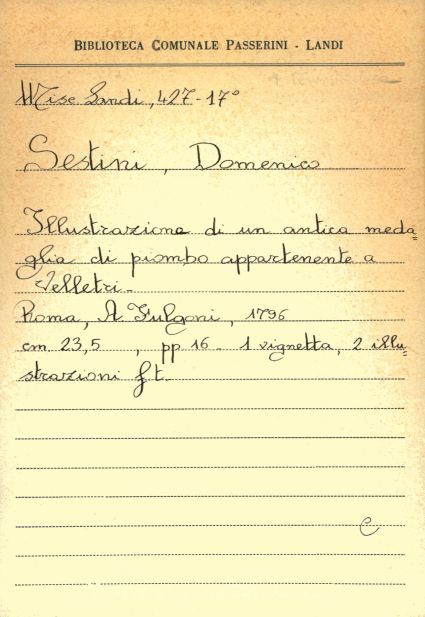 BIBLIOTECA COMUNALE PASSERINI - LANDI
Misc Landi, 427-17°
Sestini, Domenico
Illustrazione di un antica meda=
glia di piombo appartenente a
Velletri.
Roma, A Fulgoni, 1796
cm 23,5 , pp 16 - 1 vignetta, 2 illu=
strazioni f t.
C